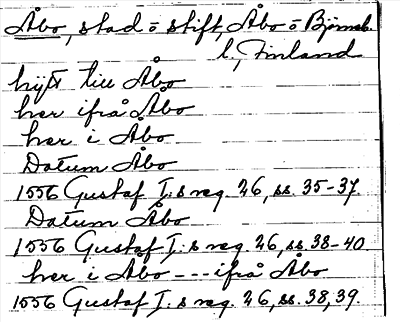 Åbo, stad o stift, Åbo o Björneb.
l., Finland
hijtt till Åbo
her ifrå Åbo
her i Åbo
Datum Åbo
1556 Gustaf I:s reg. 26, ss. 35-37.
Datum Åbo
1556 Gustaf I:s reg. 26, ss. 38-40.
her i Åbo --- ifrå Åbo
1556 Gustaf I:s reg. 26, ss. 38, 39.